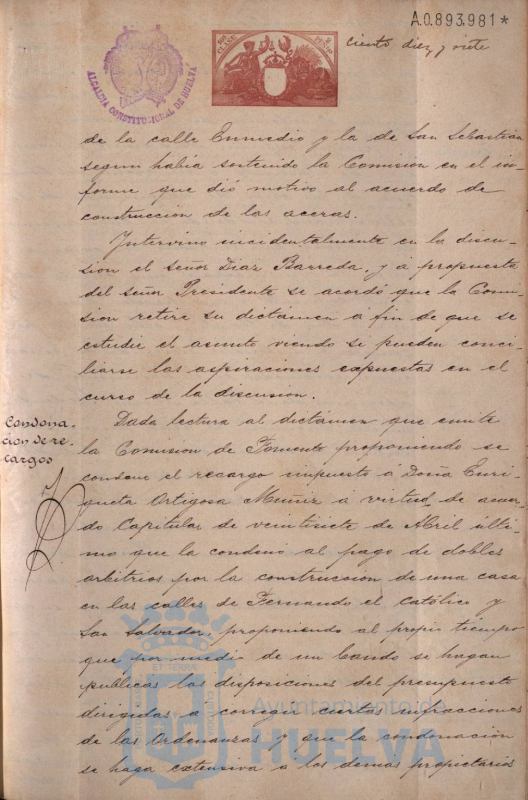 A.0.893.981*
ciento diez y siete
ALCALDIA CONSTITUCIONAL DE HUELVA
de la calle Enmedio y la de San Sebastián
segun había sostenido la Comisión en el in-
forme que dió motivo al acuerdo de
construccion de las aceras.
Intervino incidentalmente en la discu-
sion el señor Diaz Barreda, y á propuesta
del señor Presidente se acordó que la Comi-
sion retire su dictámen a fin de que se
estudie el asunto viendo se pueden conci-
liarse las aspiraciones expuestas en el
curso de la discusion.
Condona-
cion de re-
cargos
Dada lectura al dictámen que emite
la Comision de Fomento proponiendo se
condone el recargo impuesto á Doña Enri-
queta Ortigosa Muñiz á virtud de acuer-
do Capitular de veintisiete de Abril últi-
mo que la condenó al pago de dobles
arbitrios por la construccion de una casa
en las calles de Fernando el Católico y
San Salvador, proponiendo al propio tiempo
que por medio de un bando se hagan
publicas las disposiciones del presupuesto
dirigidas a corregir ciertas infracciones
de las Ordenanzas y que la condonación
se haga extensiva a los demas propietarios
Ayuntamiento de
HUELVA